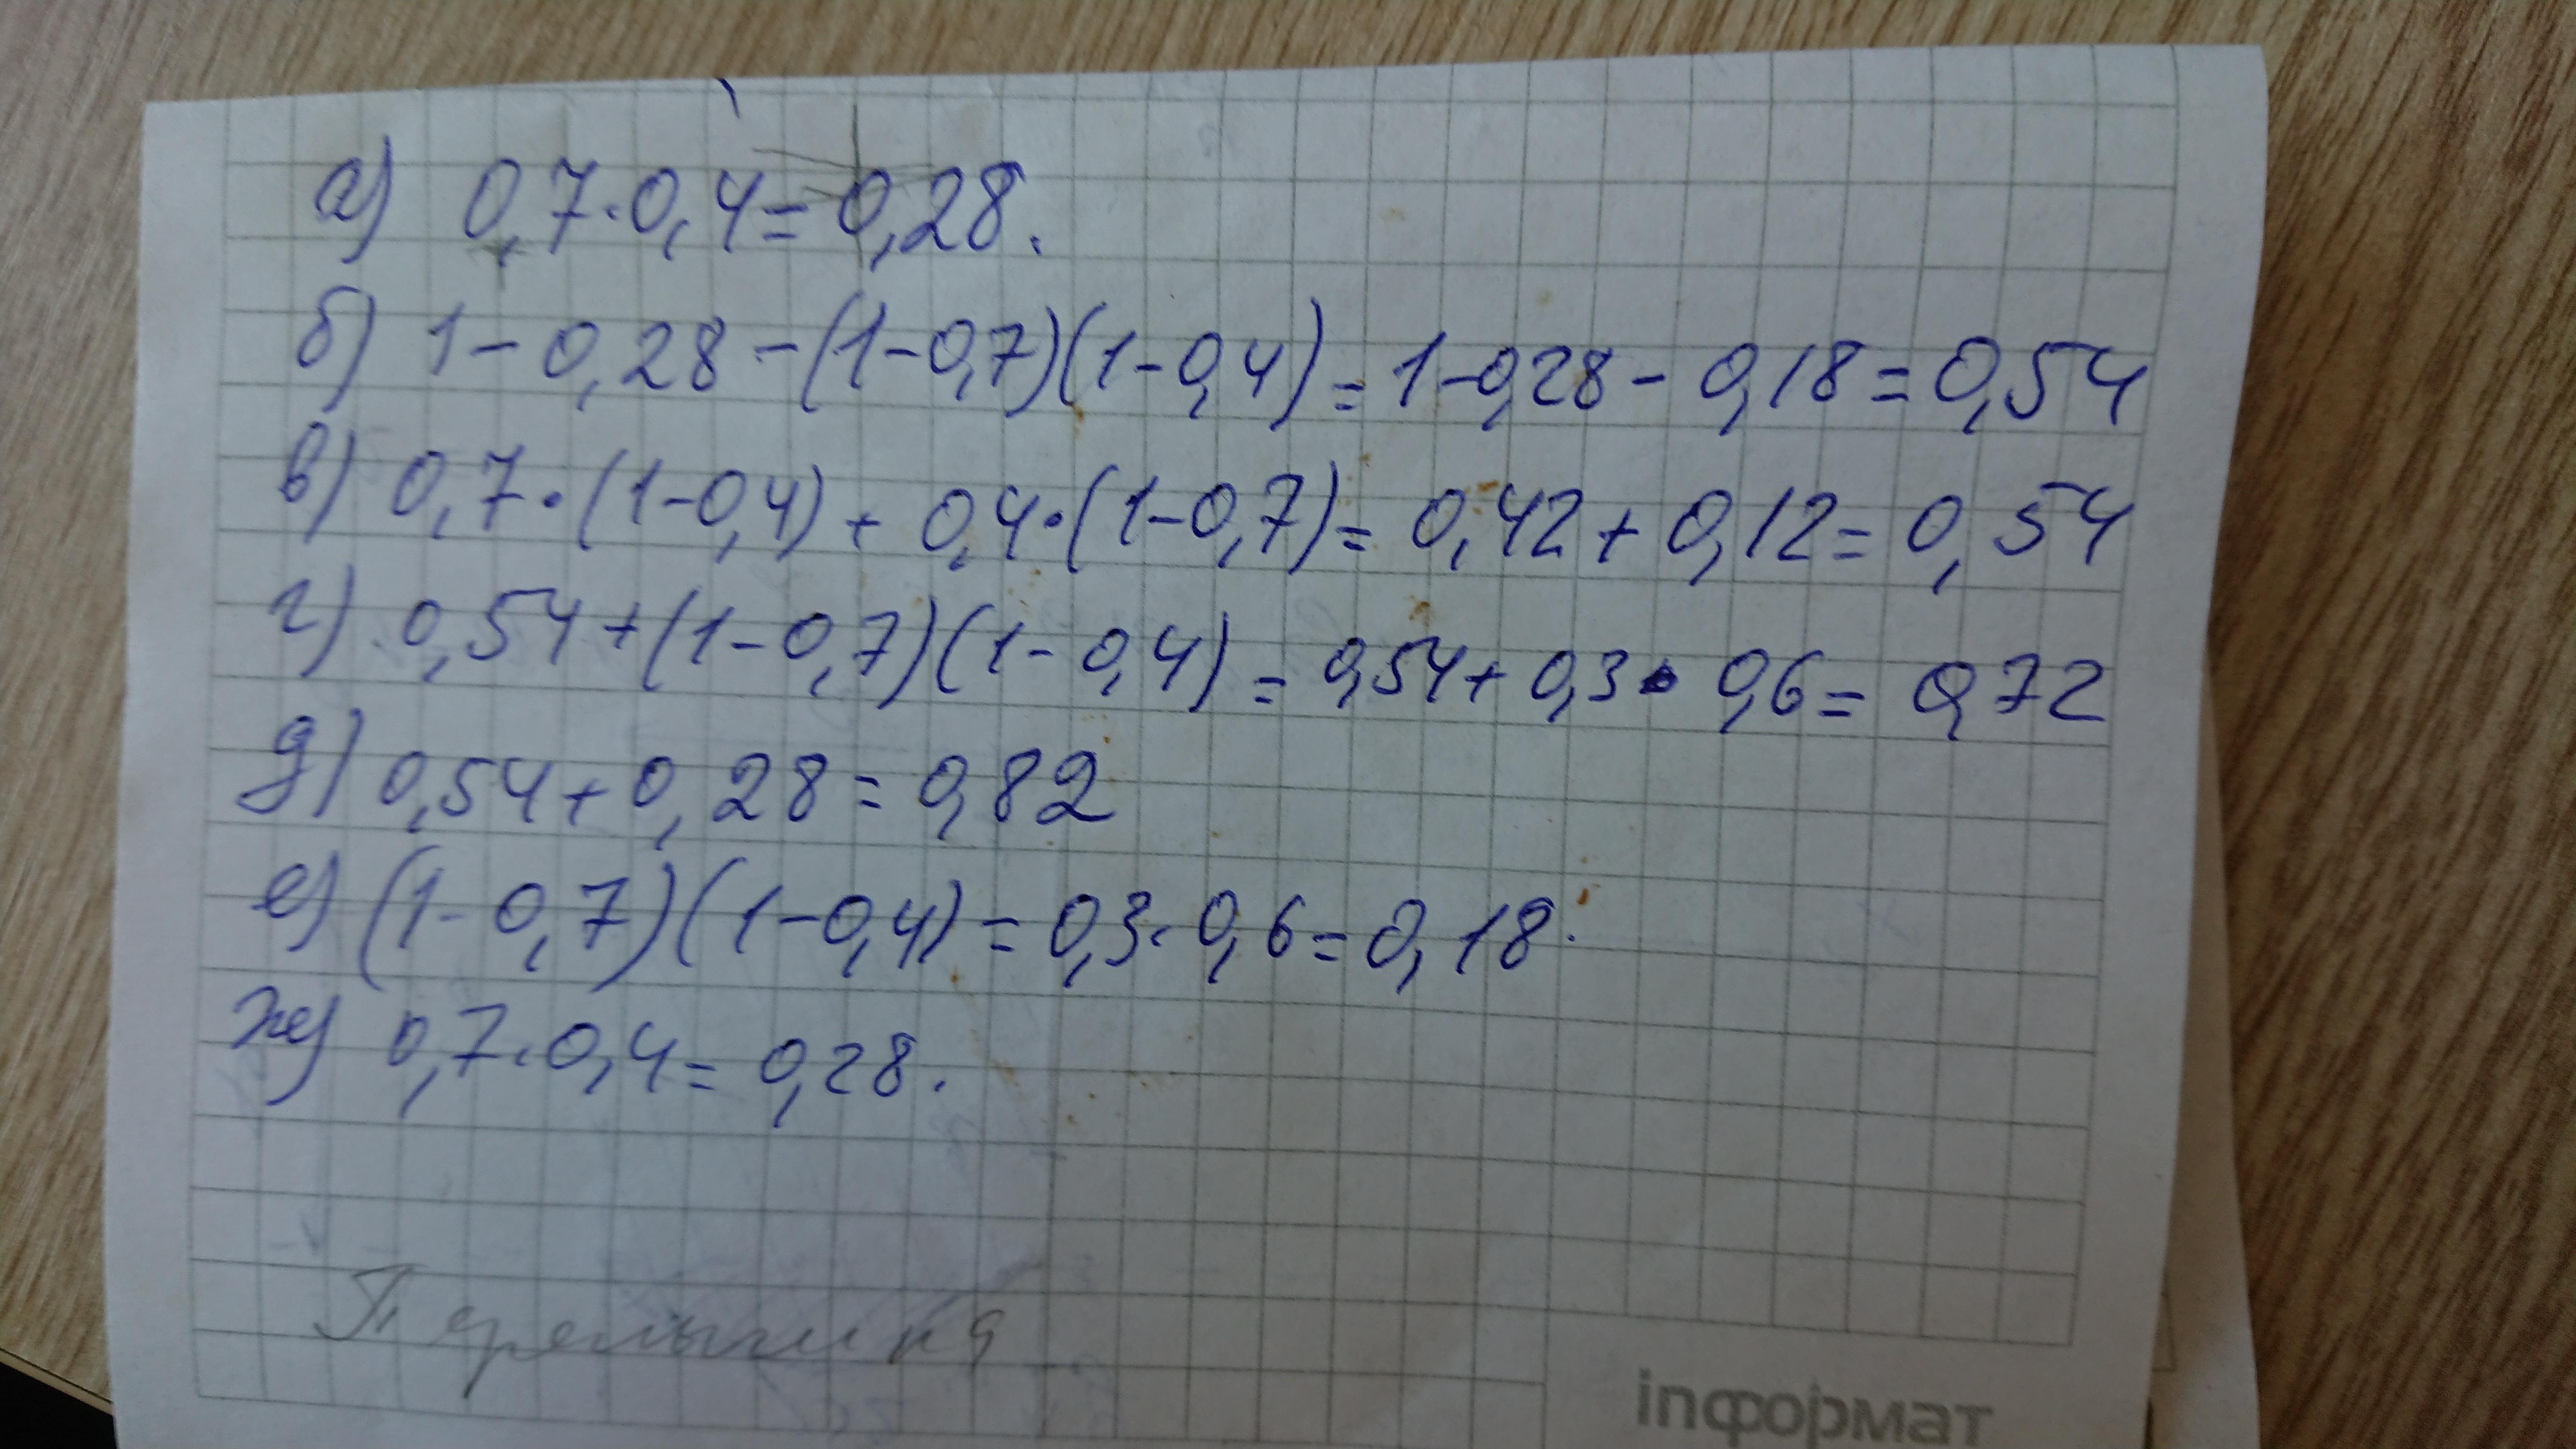 а) 0,7·0,4=0,28.
б) 1-0,28-(1-0,7)(1-0,4)=1-0,28-0,18=0,54
в) 0,7·(1-0,4)+0,4·(1-0,7)=0,42+0,12=0,54
г) 0,54+(1-0,7)(1-0,4)=0,54+0,3·0,6=0,72
д) 0,54+0,28=0,82
е) (1-0,7)(1-0,4)=0,3·0,6=0,18.
ж) 0,7·0,4=0,28.
inформат